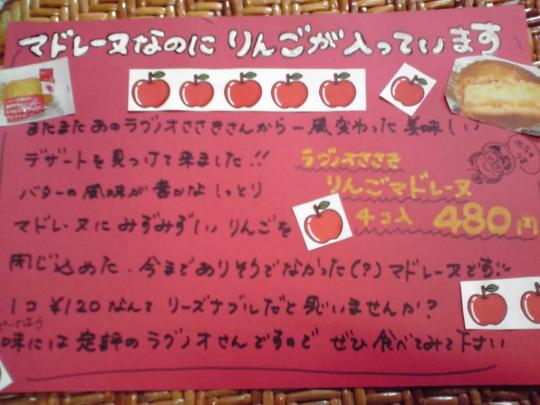 マドレーヌなのに りんごが入っています
またまた あのラグノオささきさんから 一風変わった 美味しい
デザートを見つけて来ました!!
ラグノオささき
りんごマドレーヌ
4コ入 480円
バターの風味が豊かな しっとり
マドレーヌに みずみずしい りんごを
閉じ込めた、今までありそうでなかった(?)マドレーヌです
1コ ¥120なんて リーズナブルだと思いませんか?
味には 定評の ラグノオさんですので ぜひ 食べてみて下さい